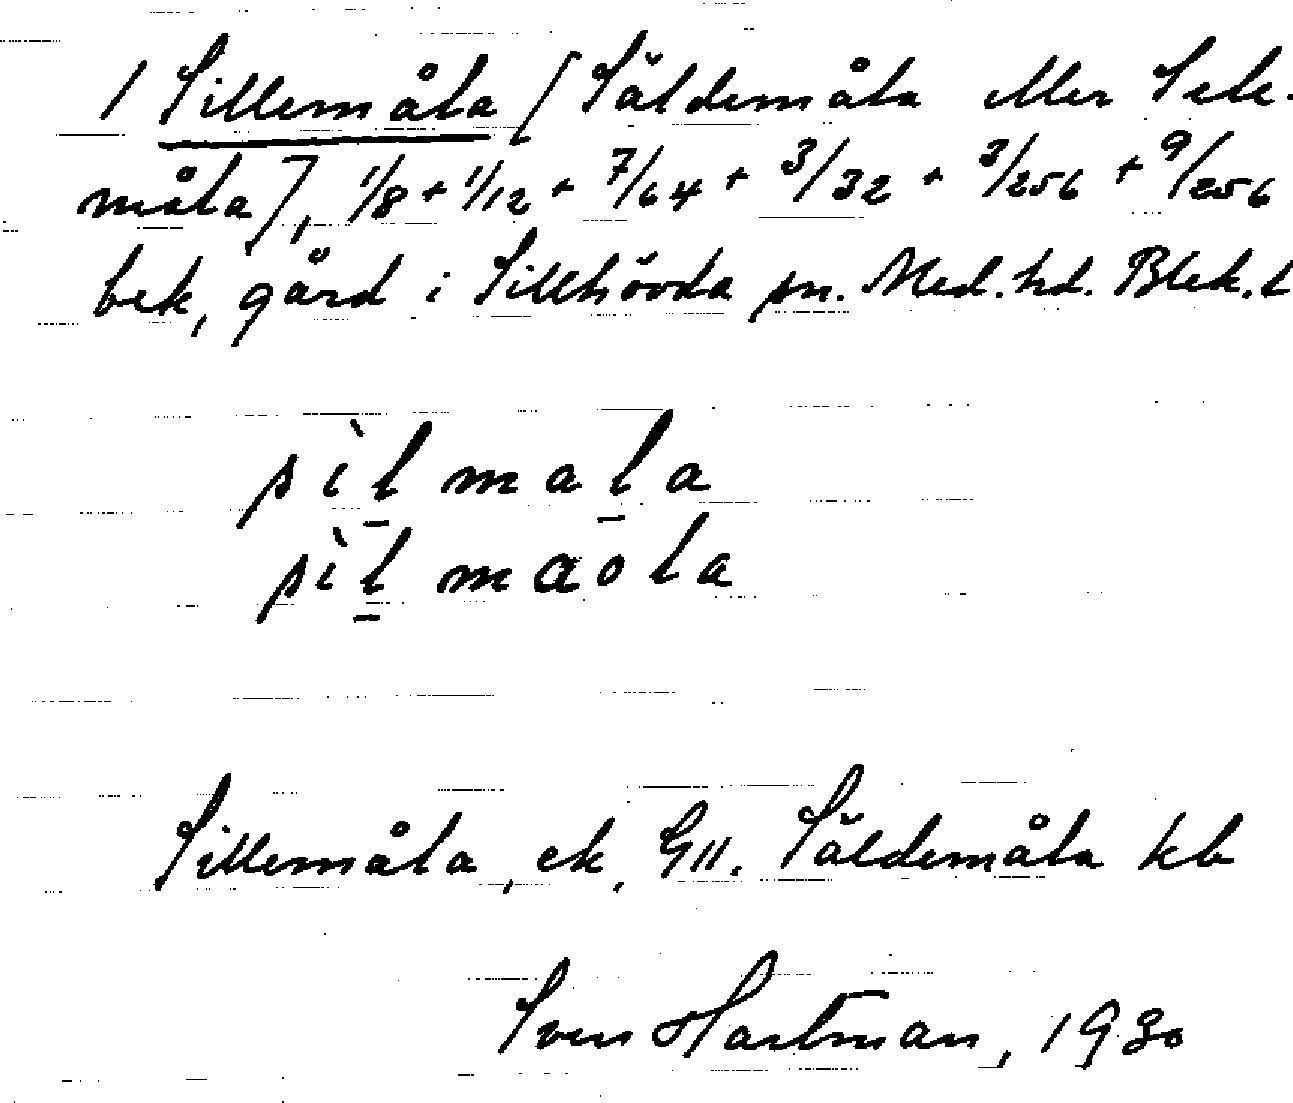 1 Sillemåla [Säldemåla eller Sele-
måla], 1/8 + 1/12 + 7/64 + 3/32 + 3/256 + 9/256
bek, gård i Sillhövda sn. Med. hd. Blek. l
sìl mala
sìl maola
Sillemåla, ek, GII. Säldemåla kb
Sven Hartman, 1930